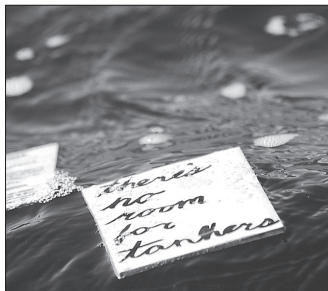 there's
no
room
for
tankers